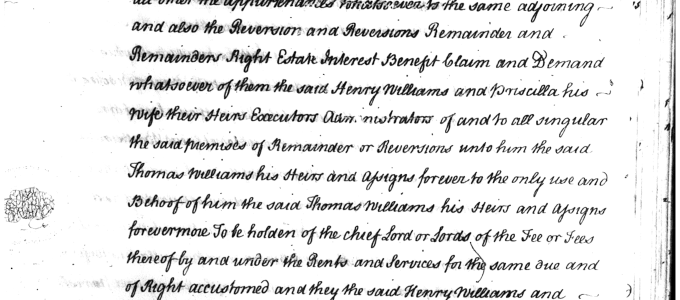 all other the appurtenances whatsoever to the same adjoining
and also the Reversion and Reversions Remainder and
Remainders Right Estate Interest Benefit Claim and Demand
whatsoever of them the said Henry Williams and Priscilla his
Wife their Heirs Executors Adm. nistrators of and to all singular
the said premises of Remainder or Reversions unto him the said
Thomas Williams his Heirs and Assigns forever to the only use and
Behoof of him the said Thomas Williams his Heirs and Assigns
forevermore To be holden of the chief Lord or Lords of the Fee or Fees
thereof by and under the Rents and Services for the same due and
of Right accustomed and they the said Henry Williams and